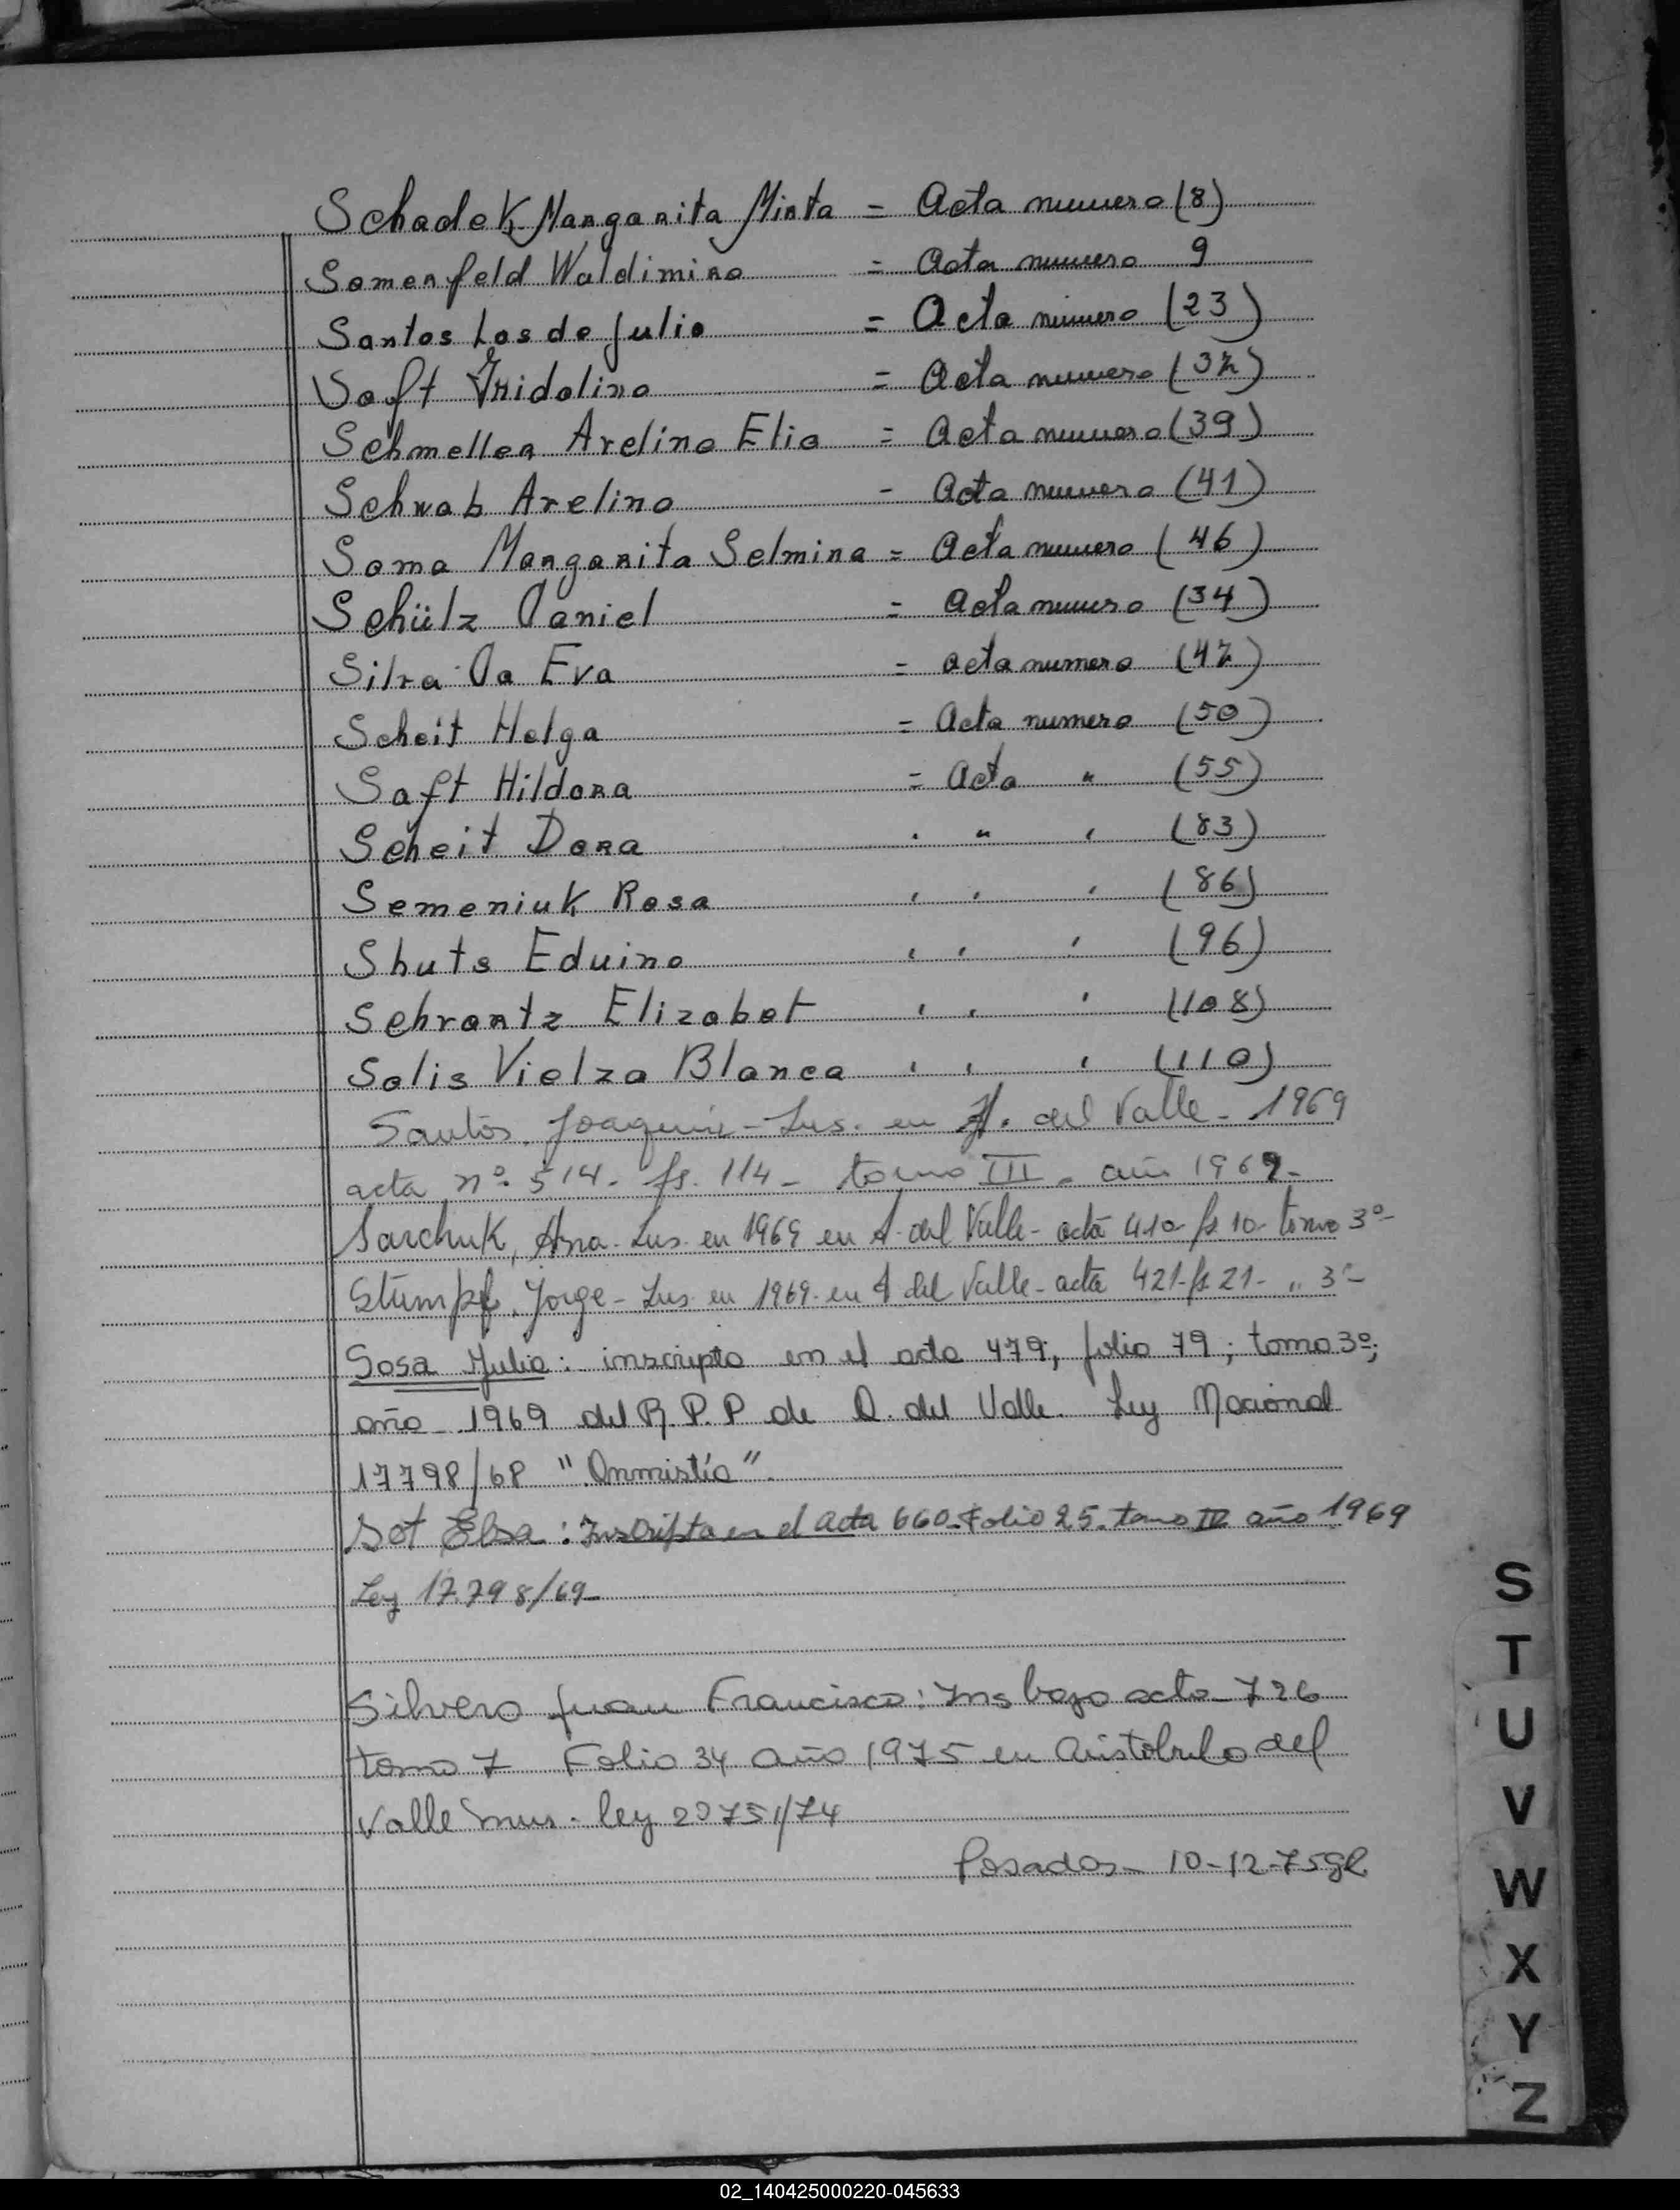 Schadek Margarita Mirta = Acta numero (8)
Somerfeld Waldimiro = Acta numero 9
Santos Los de Julio = Acta numero (23)
Saft Fridolino = Acta numero (32)
Schmeller Avelino Elio = Acta numero (39)
Schwab Avelino - Acta numero (41)
Soma Margarita Selmina = Acta numero (46)
Schülz Daniel = Acta numero (34)
Silva Da Eva = acta numero (47)
Scheit Helga = Acta numero (50)
Saft Hildora = Acta " (55)
Scheit Dora " " " (83)
Semeniuk Rosa " " " (86)
Shuts Eduino " " " (96)
Schvartz Elizabet " " " (108)
Solis Vielza Blanca " " " (110)
Santos, Joaquin - Ins. en A. del Valle - 1969
acta nº 514 - fs. 114 - tomo III - año 1969 -
Sarchuk, Ana - Ins. en 1969 en A. del Valle - acta 410 - fs 10 - tomo 3º -
Stumpf, Jorge - Ins. en 1969 - en A del Valle - acta 421 - fs 21 - " 3º -
Sosa Julio: inscripto en el acta 479; folio 79; tomo 3º;
año 1969 del R.P.P de A. del Valle. Ley Nacional
17798/68 "Anmistía".
Sot Elsa: Inscripta en el acta 660 - Folio 25 - tomo IV año 1969
Ley 17.798/69 -
Silvero Juan Francisco: Ins bajo acta - 726
tomo 7 Folio 34 año 1975 en Aristobulo del
Valle mns. ley 20751/74
Posadas - 10-12-75
S
T
U
V
W
X
Y
Z
02_140425000220-045633